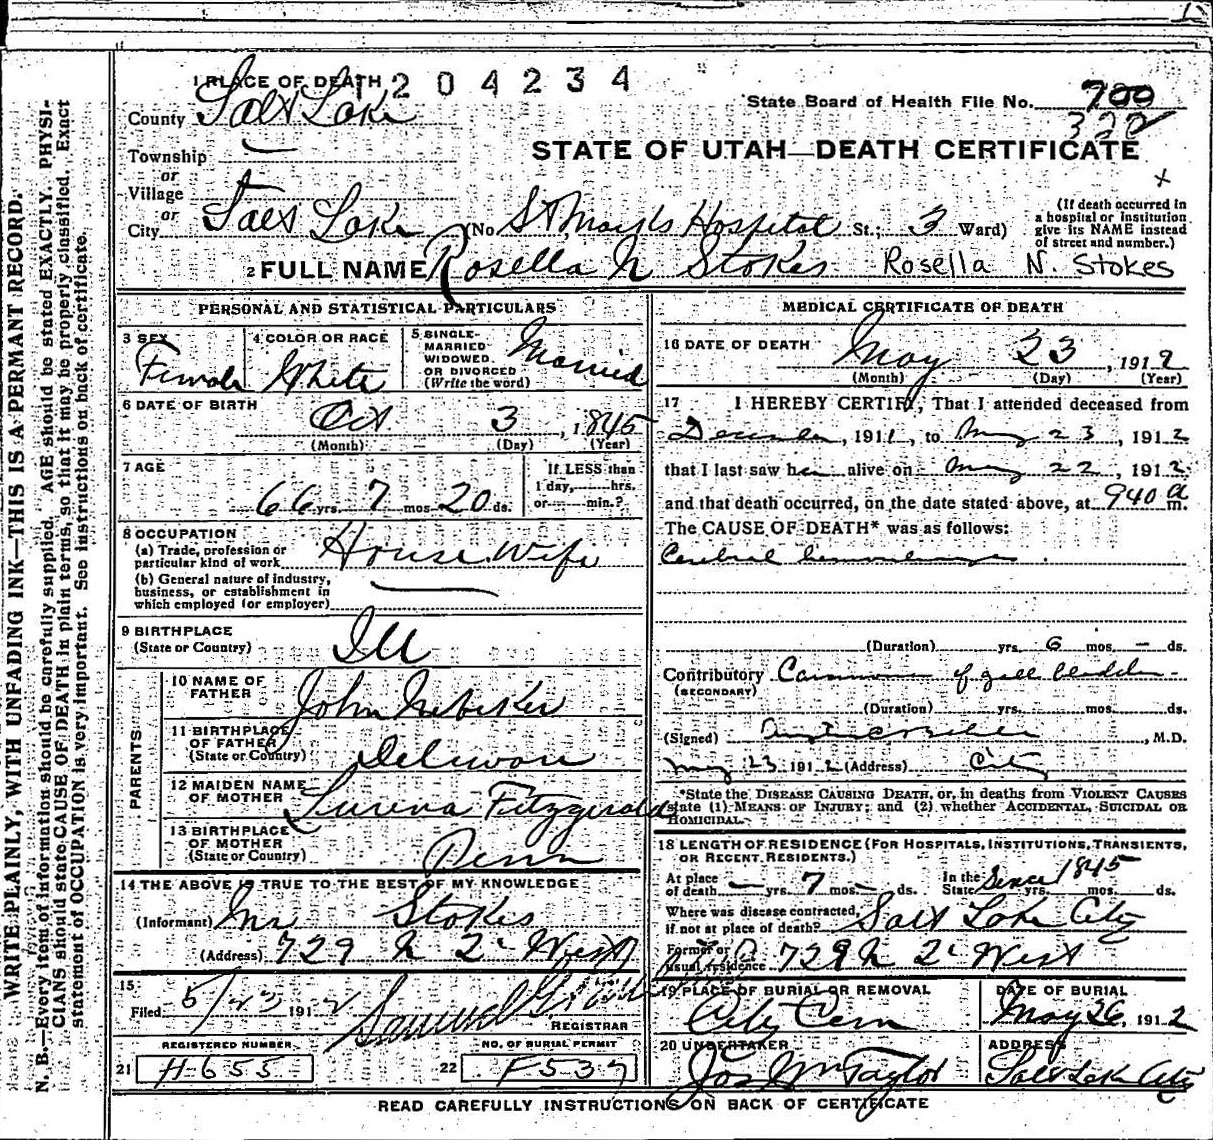 1 PLACE OF DEATH 1204234
State Board of Health File No. 700
322
County Salt Lake
Township
or
Village
or
City Salt Lake (No St Marks Hospital St.; 3 Ward)
STATE OF UTAH—DEATH CERTIFICATE
x
(If death occurred in
a hospital or institution
give its NAME instead
of street and number.)
2 FULL NAME Rosella N Stokes Rosella N. Stokes
PERSONAL AND STATISTICAL PARTICULARS
3 SEX Female
4 COLOR OR RACE White
5 SINGLE-
MARRIED
WIDOWED
OR DIVORCED
(Write the word) Married
6 DATE OF BIRTH
Oct 3, 1845
(Month) (Day) (Year)
7 AGE
66 yrs. 7 mos. 20 ds.
If LESS than
1 day, hrs.
or min.?
8 OCCUPATION
(a) Trade, profession or
particular kind of work House Wife
(b) General nature of industry,
business, or establishment in
which employed (or employer)
9 BIRTHPLACE
(State or Country) Ill
PARENTS
10 NAME OF
FATHER John Nebeker
11 BIRTHPLACE
OF FATHER
(State or Country) Deliware
12 MAIDEN NAME
OF MOTHER Lurena Fitzgerald
13 BIRTHPLACE
OF MOTHER
(State or Country) Penn
14 THE ABOVE IS TRUE TO THE BEST OF MY KNOWLEDGE
(Informant) Mr Stokes
(Address) 729 N 2d West
15
Filed 5/23 1912 Samuel G.
REGISTRAR
REGISTERED NUMBER
21 H-655
NO. OF BURIAL PERMIT
22 F537
MEDICAL CERTIFICATE OF DEATH
16 DATE OF DEATH May 23, 1912
(Month) (Day) (Year)
17 I HEREBY CERTIFY, That I attended deceased from
December, 1911, to May 23, 1912
that I last saw her alive on May 22, 1912
and that death occurred, on the date stated above, at 940 a m.
The CAUSE OF DEATH* was as follows:
Cerebral hemorrhage
(Duration) yrs. 6 mos. — ds.
Contributory Carcinoma of gall bladder
(SECONDARY)
(Duration) yrs. mos. ds.
(Signed) , M.D.
May 23 1912 (Address) City
*State the DISEASE CAUSING DEATH, or, in deaths from VIOLENT CAUSES
state (1) MEANS OF INJURY; and (2) whether ACCIDENTAL, SUICIDAL OR
HOMICIDAL.
18 LENGTH OF RESIDENCE (FOR HOSPITALS, INSTITUTIONS, TRANSIENTS,
OR RECENT RESIDENTS.)
At place
of death — yrs. 7 mos. — ds.
In the
State Since 1845 yrs. mos. ds.
Where was disease contracted,
if not at place of death? Salt Lake City
Former or
usual residence 729 N 2d West
19 PLACE OF BURIAL OR REMOVAL
City Cem
DATE OF BURIAL
May 26, 1912
20 UNDERTAKER
Jos Wm Taylor
ADDRESS
Salt Lake City
READ CAREFULLY INSTRUCTIONS ON BACK OF CERTIFICATE
WRITE PLAINLY, WITH UNFADING INK—THIS IS A PERMANT RECORD.
N. B.—Every item of information should be carefully supplied. AGE should be stated EXACTLY. PHYSI-
CIANS should state CAUSE OF DEATH in plain terms, so that it may be properly classified. Exact
statement of OCCUPATION is very important. See instructions on back of certificate.